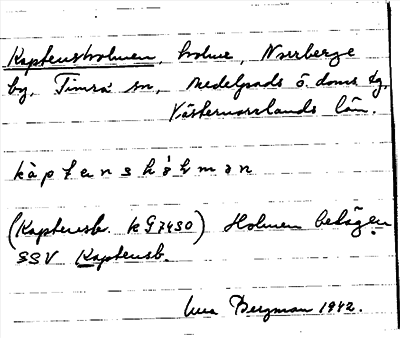 Kaptensholmen, holme, Norrberge
by, Timrå sn, Medelpads ö. doms. tg,
Västernorrlands län.
kàptenshɔ̀lmən
(Kaptensb. kG7430) Holmen belägen
SSV Kaptensb.
Bergman 1942.